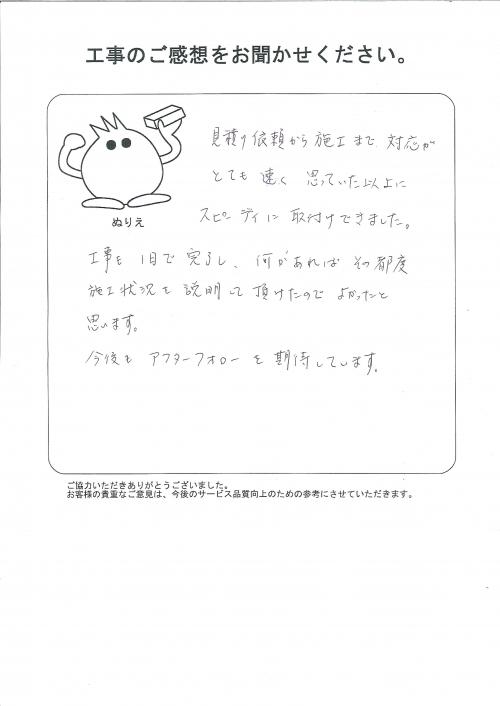 工事のご感想をお聞かせください。
見積り依頼から施工まで対応が
とても速く思っていた以上に
スピーディに取付けできました。
ぬりえ
工事も1日で完了し、何かあればその都度
施工状況を説明して頂けたのでよかったと
思います。
今後もアフターフォローを期待しています。
ご協力いただきありがとうございました。
お客様の貴重なご意見は、今後のサービス品質向上のための参考にさせていただきます。